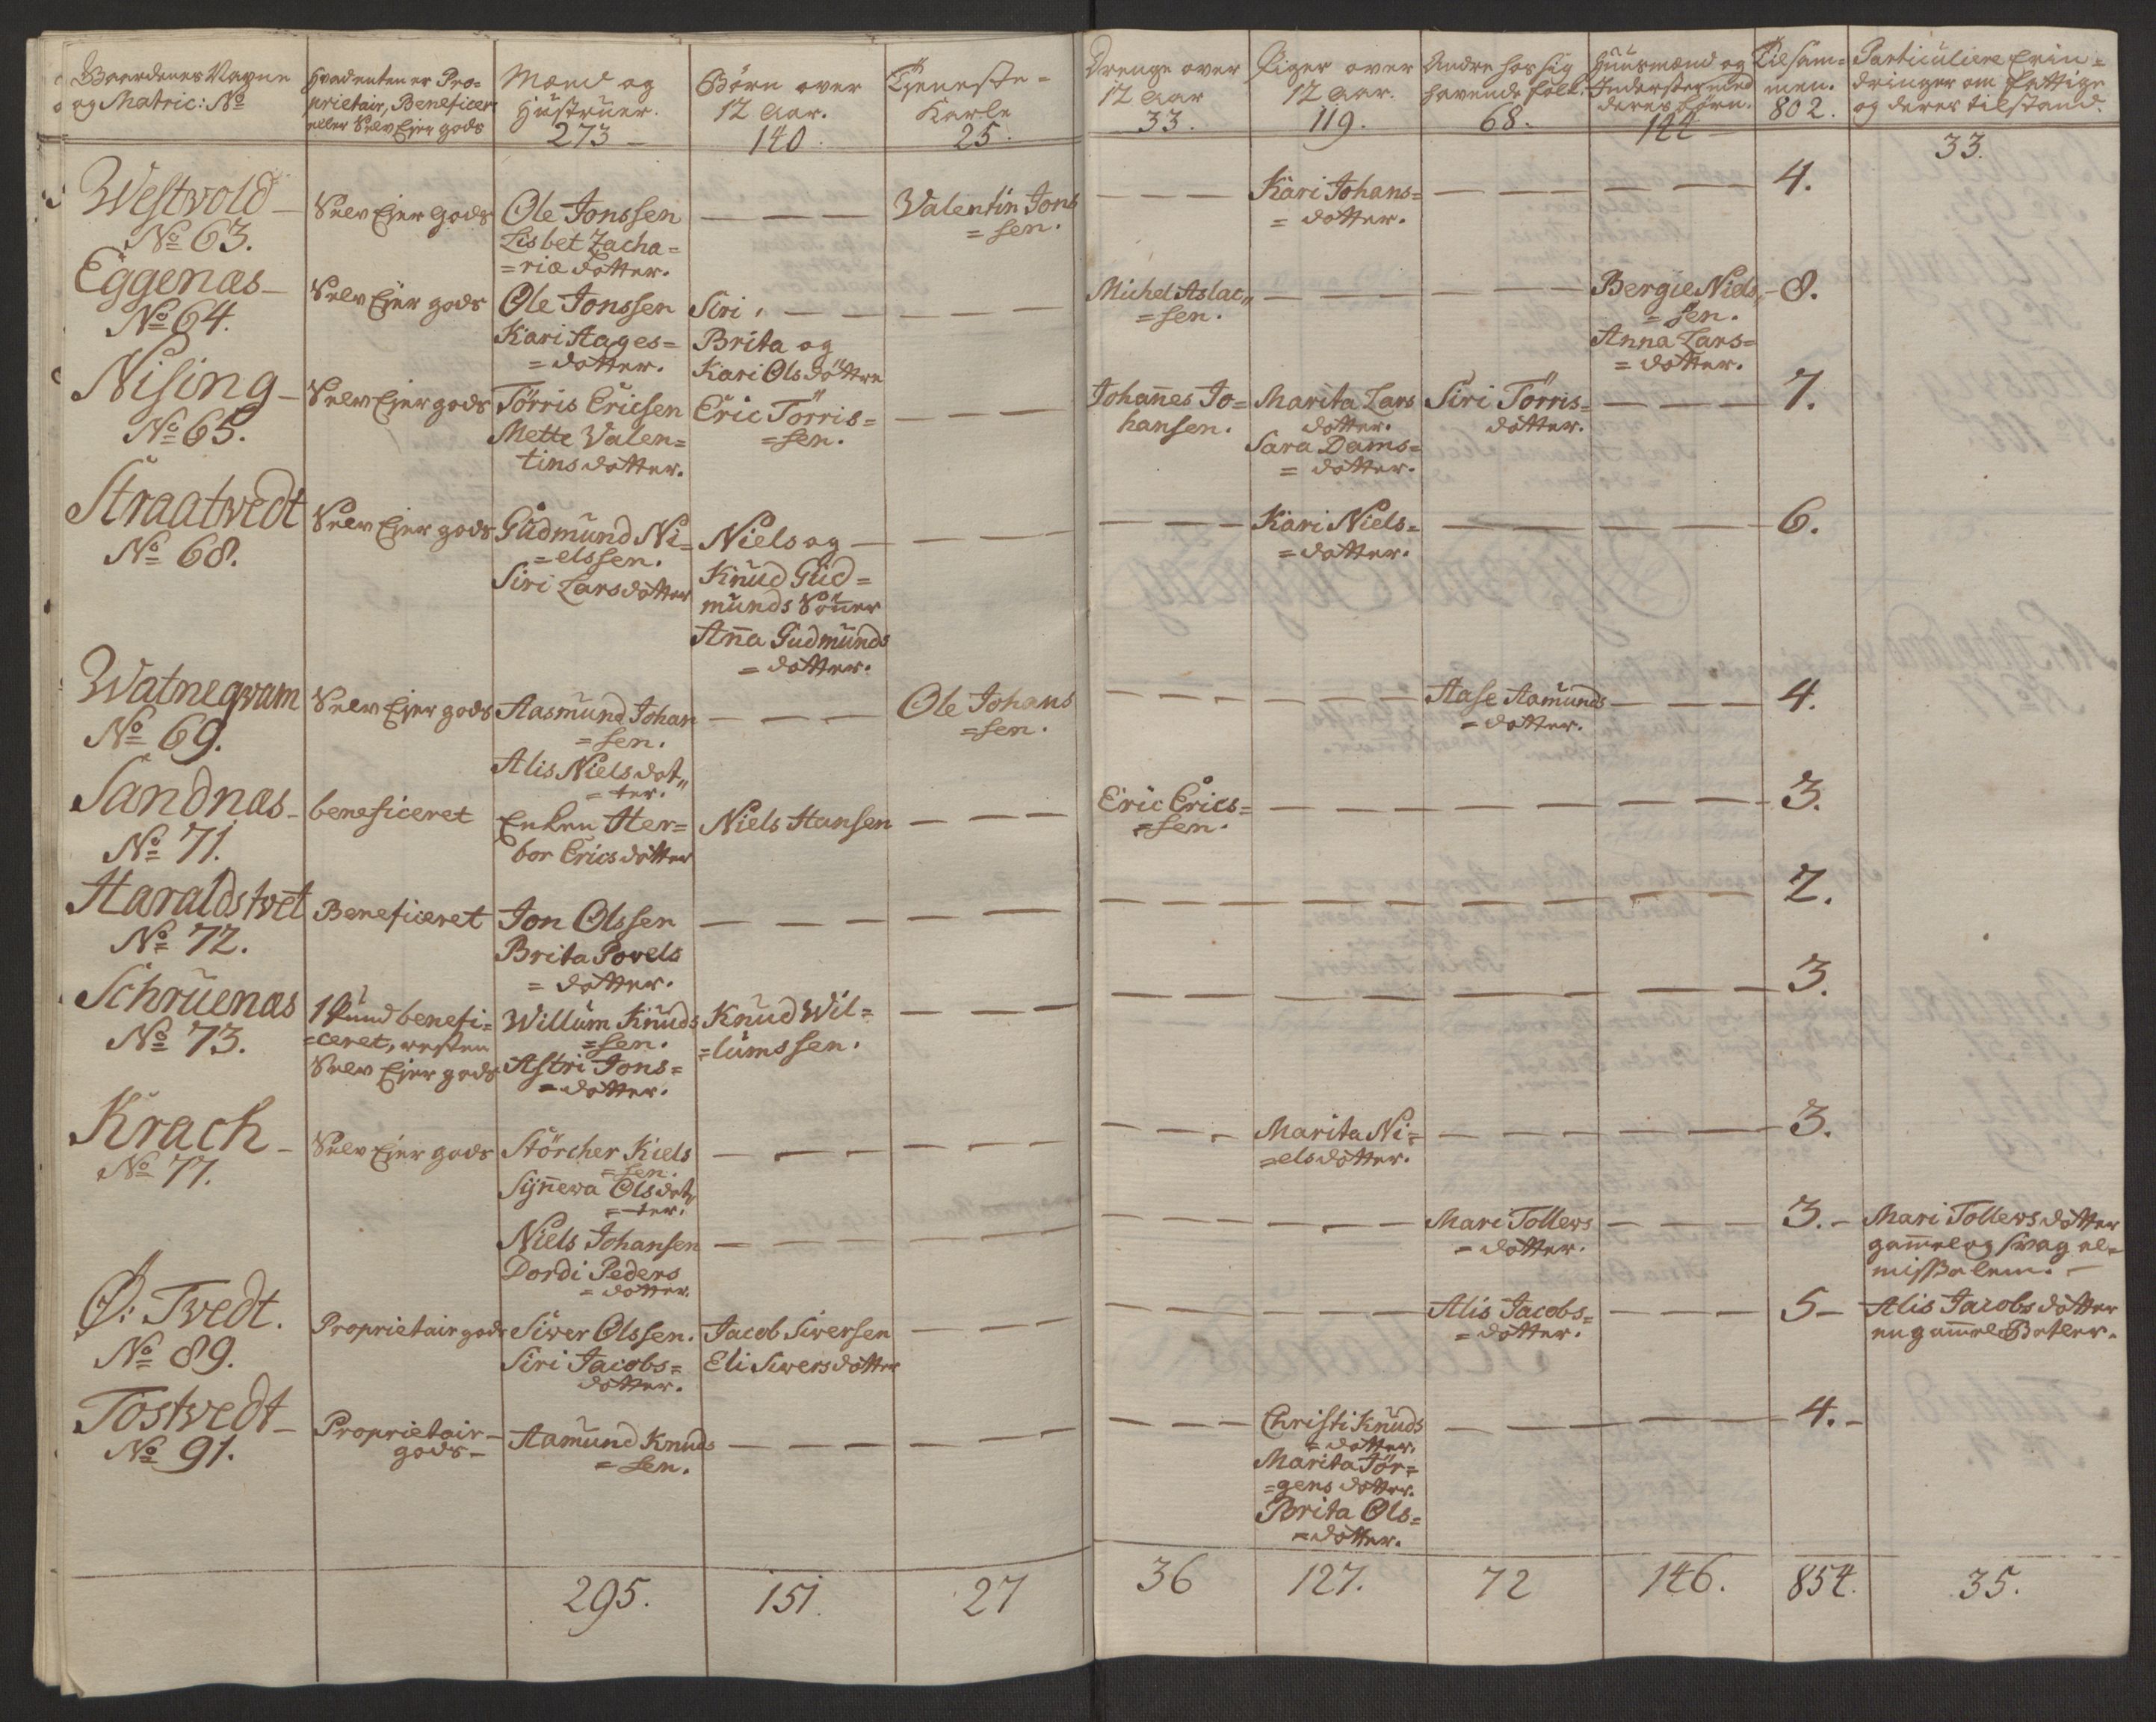 Gaardenes Navne
og Matric: No
Hvad enten er Pro-
prietair, Beneficer
eller Selv Ejer gods
Mænd og
Hüstrüer.
273
Börn over
12 Aar.
140.
Tjeneste-
Karle
25.
Drenge over
12 Aar
33.
Piger over
12 Aar.
119.
Andre hos sig
havende folk.
68.
Huusmænd og
Inderster med
deres börn.
142
Tilsam-
men.
802.
Particuliere Erin-
dringer om fattige
og deres tilstand.
33.
Westvold
No 63.
Selv Ejer gods
Ole Jonssen
Lisbet Zacha=
=riæ dotter.
Valentin Jons
=sen.
Kari Johans=
=dotter.
4.
Eggenæs
No 64.
Selv Ejer gods
Ole Jonssen
Kari Aages=
=dotter.
Siri,
Brita og
Kari Ols döttre
Michel Aslac„
=sen.
Bergie Niels„
=sen.
Anna Lars=
=dotter.
8.
Nising
No 65.
Selv Ejer gods
Törris Ericsen
Mette Valen=
tins dotter.
Eric Törris=
=sen.
Johan̄es Jo=
hansen.
Marita Lars
dotter.
Sara Dams=
=dotter.
Siri Törris=
dotter.
7.
Straatvedt
No 68.
Selv Ejer gods
Güdmünd Ni=
=elssen.
Siri Larsdotter
Niels og
Knüd Güd=
münds Sön̄er
An̄a Güdmünds
=dotter.
Kari Niels=
=dotter.
6.
Watneqvam
No 69.
Selv Ejer gods
Aasmünd Johan
=sen.
Alis Niels dot„
=ter.
Ole Johans
=sen.
Aase Aamünds
=dotter.
4.
Sandnæs
No 71.
beneficeret
Enken Her=
bor Erics dotter
Niels Hansen
Eric Erics=
=sen.
3.
Haraldstvet
No 72.
Beneficeret
Jon Olssen
Brita Povels
=dotter.
2.
Schrüenæs
No 73.
1 Pund benefi=
=ceret, resten
Selv Ejer gods
Willüm Knüds
=sen.
Astri Jons=
=dotter.
Knüd Wil=
=lümssen.
3.
Krach
No 77.
Selv Ejer gods
Störcher Kiels
=sen.
Syn̄eva Ols dot„
=ter.
Marita Ni=
=elsdotter.
3.
Niels Johansen
Dordi Peders
=dotter.
Mari Tollevs
=dotter.
3.
Mari Tollevs dotter
gam̄el og svag al=
misse lem.
Ø: Tvedt.
No 89.
Proprietair gods
Siver Olssen.
Siri Jacobs=
dotter.
Jacob Siversen
Eli Siversdotter
Alis Jacobs=
=dotter.
5
Alis Jacobs dotter
en gam̄el Betler.
Tostvedt
No 91.
Proprietair
gods
Aamünd Knuds
=sen.
Christi Knüds
=dotter.
Marita Jör=
=gens dotter.
Brita Ols=
=dotter.
4.
295.
151.
27
36
127.
72
146.
854.
35.